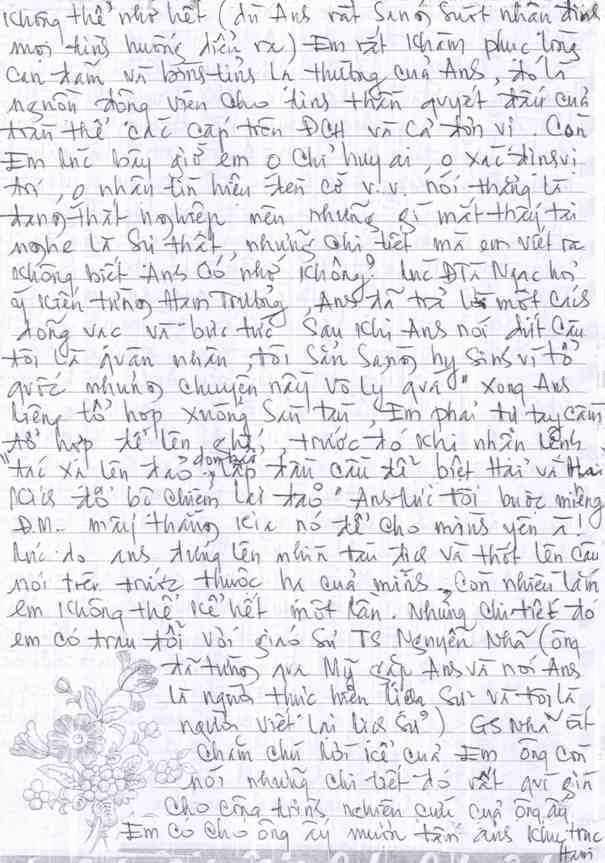 Không thể nhớ hết (dù Ans rất Sáng Suốt nhận địns
mọi tìns huống diễn ra) Em rất khâm phục lòng
can đảm và bìns-tĩns lạ thường của Ans, đó là
nguồn động viên cho tins thần quyết đấu của
trần thế các cấp trên ĐCH và cả đơn vị. Còn
Em lúc bây giờ em o chỉ huy ai, o xác địns vị
trí, o nhận tín hiệu đèn cờ v.v. nói thẳng là
đang thất nghiệp nên những gì mắt thấy tai
nghe là Sự thật, những chi tiết mà em viết ra
không biết Ans Có nhớ không? lúc ĐTá Ngạc hỏi
ý kiến từng Hạm Trưởng, Ans đã trả lời một các
dõng vạc và bực tức Sau khi Ans nói dứt Câu
tôi là quân nhân, tôi Sẵn Sàng hy Sins vì tổ
quốc nhưng chuyện nầy vô lý quá" xong Ans
liệng tổ hợp xuống Sàn tàu, Em phải tự tay cầm
tổ hợp để lên chỗ, trước đó khi nhận lệns
"tác xạ lên đảo dọn bãi, lập đầu cầu để biệt Hải và Hải
Kích đổ bộ chiếm lại đảo" Ans lúc tôi buộc miệng
Đ.M.. mấy thằng kia nó để cho mìns yên à!
lúc đó ans đứng lên nhìn tàu địch và thốt lên câu
nói trên trước thuộc hạ của mìns. Còn nhiều lắm
em không thể kể hết một lần. Những chi tiết đó
em có trau đổi với giáo Sư TS Nguyễn Nhã (ông
đã từng qua Mỹ gặp Ans và nói Ans
là người thực hiện lịch Sử và tôi là
người viết lại lịch Sử) GS Nhã rất
chăm chú lời kể của Em ông còn
nói những chi tiết đó rất quí giá
cho công trìns nghiên cứu của ông ấy
Em có cho ông ấy mượn tấm ans Khu trục
Hạm